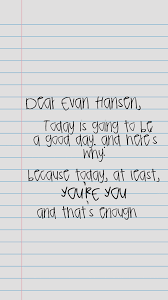 Dear Evan Hansen,
Today is going to be
a good day. and here's
why:
because today, at least,
YOU'RE YOU
and that's enough